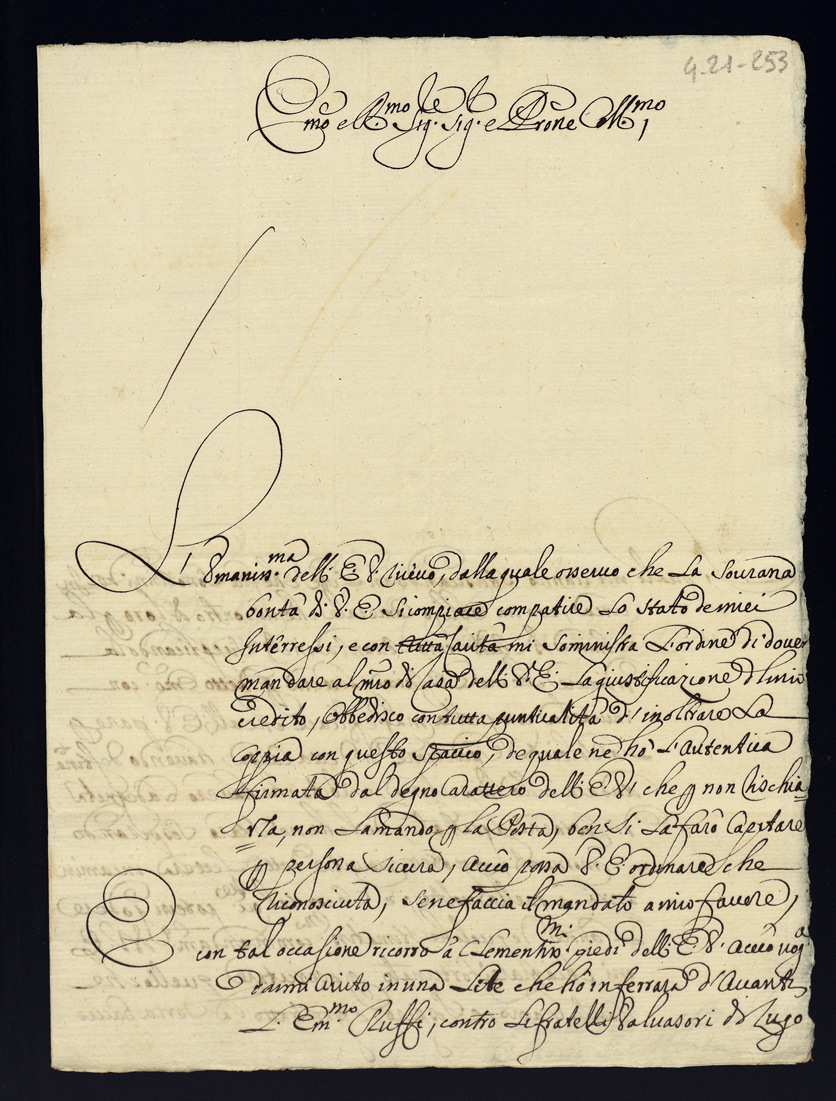 4.21-253
Em̃o e R.mo Sig.r Sig.r e Prone Col.mo
L'Umaniss.ma dell' E. V. ricevo, dalla quale osservo che La Sourana
bontà di V. E. si compiace compatire Lo stato de miei
Interressi, e con tutta carità mi Soministra L'ordine di dover
mandare al mro di Casa dell' V. E. La giustificazione d'l mio
credito, Obbedisco con tutta puntualità d'inoltrare La
coppia con questo spaccio, de quale ne hò L'autentica
firmata dal degno Carattero dell' E. V. che p non rischia=
rla, non La mando p la Posta, ben si La farò Capitare
p persona sicura, acciò possa V. E. ordinare che
riconosciuta, se ne faccia il mandato a mio favore,
E con tal occasione ricorro a Clementiss.mi piedi dell' E. V. acciò vog.a
darmi aiuto in una Lite che hò in ferrara d'Avanti
L' Em.mo Ruffi, contro Li fratelli Salvasori di Lugo